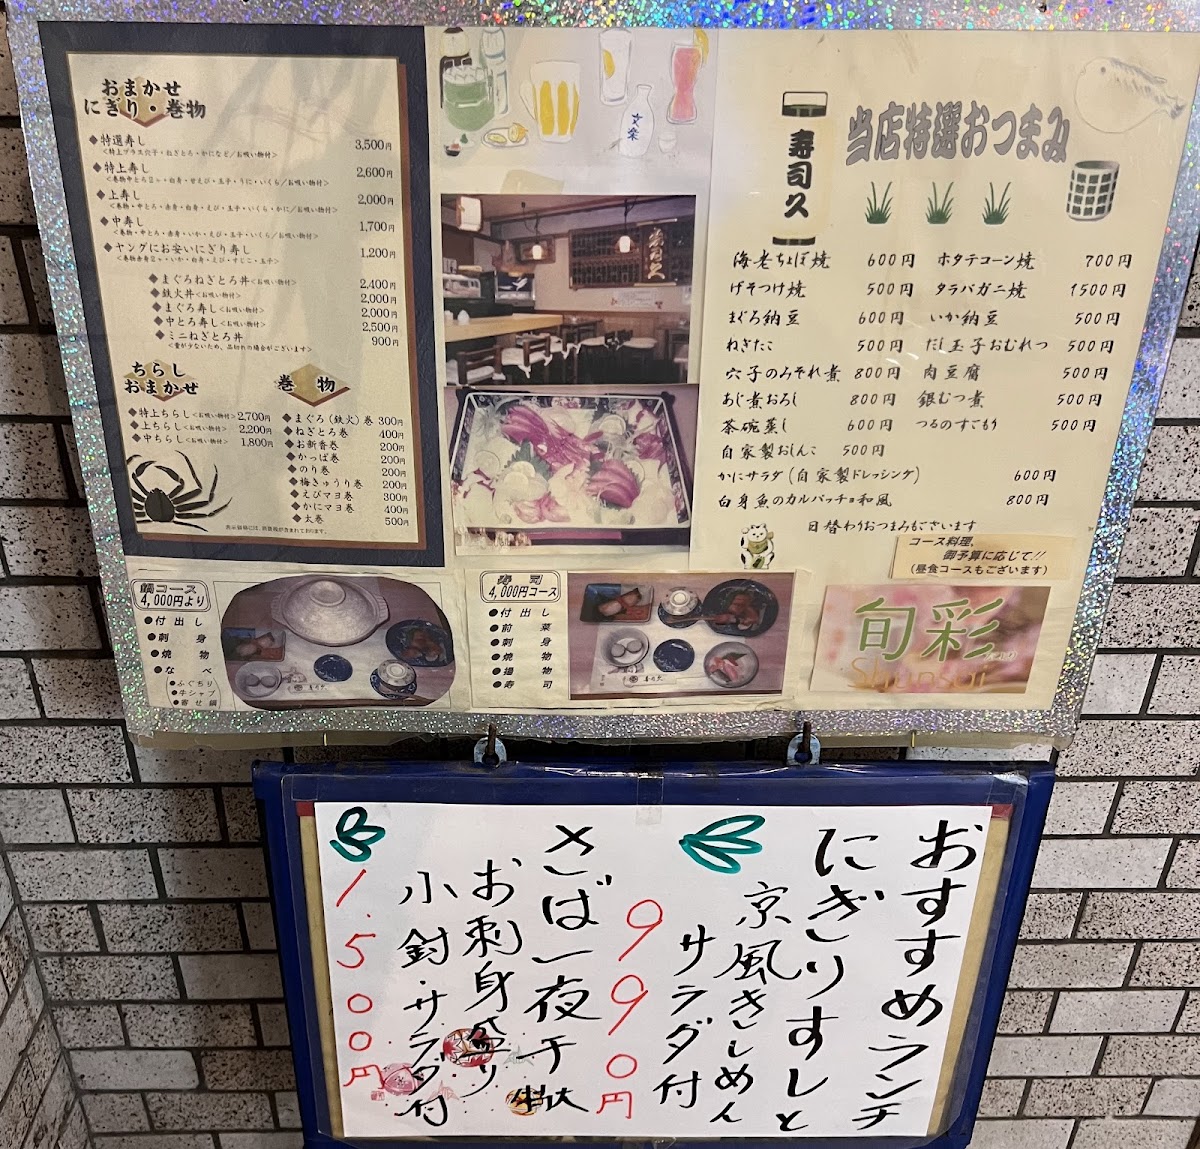 おまかせ
にぎり・巻物
◆特選寿し 3,500円
＜特上プラス穴子・ねぎとろ・かになど／お吸い物付＞
◆特上寿し 2,600円
◆上寿し 2,000円
◆中寿し 1,700円
◆ヤングにお安いにぎり寿し 1,200円
◆まぐろねぎとろ丼＜お吸い物付＞ 2,400円
◆鉄火丼＜お吸い物付＞ 2,000円
◆まぐろ寿し＜お吸い物付＞ 2,000円
◆中とろ寿し＜お吸い物付＞ 2,500円
◆ミニねぎとろ丼 900円
＜量が少ないため、品切れの場合がございます＞
ちらし
おまかせ
◆特上ちらし＜お吸い物付＞ 2,700円
◆上ちらし＜お吸い物付＞ 2,200円
◆中ちらし＜お吸い物付＞ 1,800円
巻物
◆まぐろ（鉄火）巻 300円
◆ねぎとろ巻 400円
◆お新香巻 200円
◆かっぱ巻 200円
◆のり巻 200円
◆梅きゅうり巻 200円
◆えびマヨ巻 300円
◆かにマヨ巻 400円
◆太巻 500円
表示価格には、消費税が含まれております。
文楽
寿司久
寿司久
当店特選おつまみ
海老ちょぼ焼 600円 ホタテコーン焼 700円
げそつけ焼 500円 タラバガニ焼 1500円
まぐろ納豆 600円 いか納豆 500円
ねぎたこ 500円 だし玉子おむれつ 500円
穴子のみそれ煮 800円 肉豆腐 500円
あじ煮おろし 800円 銀むつ煮 500円
茶碗蒸し 600円 つるのすごもり 500円
自家製おしんこ 500円
かにサラダ（自家製ドレッシング） 600円
白身魚のカルパッチョ和風 800円
日替わりおつまみもございます
コース料理、
御予算に応じて!!
（昼食コースもございます）
鍋コース
4,000円より
●付出し
●刺身
●焼物
●なべ
●ふぐちり
●牛シャブ
●寄せ鍋
寿司
4,000円コース
●付出し
●前菜
●刺身
●焼物
●揚物
●寿司
旬彩
Shunsai
おすすめランチ
にぎりすしと
京風きしめん
サラダ付
990円
さば一夜干
お刺身盛り
小鉢・サラダ付
1.500円